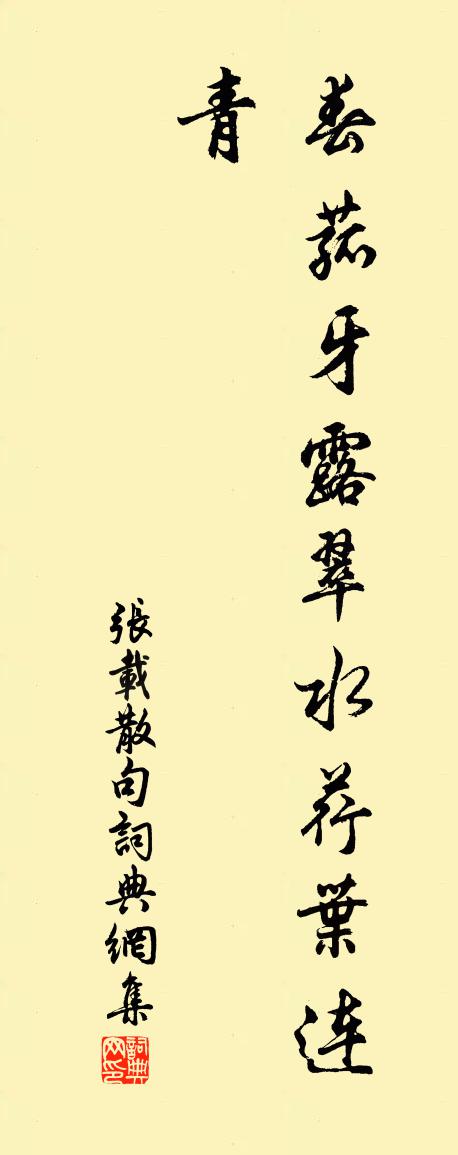 春菰牙露翠水荇葉連
青
張載散句詞典網集
詞典网印